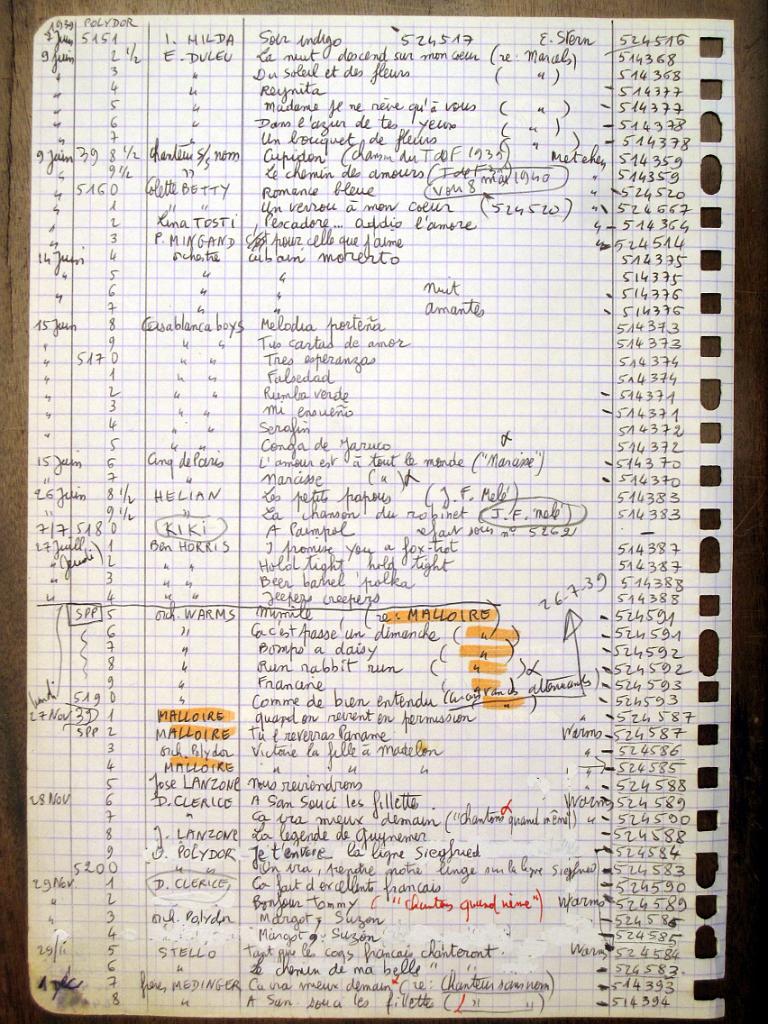 1939 POLYDOR
5151 I. MILDA Soir indigo 524517 E. Stern 524516
9 juin 2 1/2 E. DULEU La nuit descend sur mon cœur (re: Marcels) 514368
" 3 " Du soleil et des fleurs ( " ) - 514368
" 4 " Reynita - 514377
" 5 " Madame je ne rêve qu'à vous ( " ) - 514377
" 6 " Dans l'azur de tes yeux ( " ) - 514378
" 7 " Un bouquet de fleurs ( " ) - 514378
9 juin 39 8 1/2 chanteur s/s nom Cupidon (chanson du T de F 1939) Metehen 514359
" 9 1/2 " Le chemin des amours (T de F 39) " 514359
" 5160 Colette BETTY Romance bleue voir 8 mai 1940 " 524520
" 1 " Un verrou à mon coeur (524520) " - 524667
" 2 Lina TOSTI Pescadore... addio l'amore " - 514364
" 3 P. MINGAND C'est pour celle que j'aime " - 524514
14 Juin 4 orchestre cubain morerto 514375
" 5 " " 514375
" 6 " " nuit - 514376
" 7 " " amantes - 514376
15 juin 8 Casablanca boys Melodia porteña 514373
" 9 " " Tus cartas de amor 514373
" 5170 " " Tres esperanzas 514374
" 1 " " Falsedad 514374
" 2 " " Rumba verde - 514371
" 3 " " Mi ensueño - 514371
" 4 " " Serafin 514372
" 5 " " Conga de Jaruco 514372
15 Juin 6 Cinq de Paris L'amour est à tout le monde ("Narcisse") - 514370
" 7 " Narcisse ( " ) - 514370
26 Juin 8 1/2 HELIAN Les petits papous (J.F. Melé) 514383
" 9 1/2 " La chanson du robinet (J.F. Melé) 514383
7/7 5180 KIKI A Paimpol refait sous n° 5262 1 —
27 Juill 1 Ben HORRIS I promise you a fox-trot 514387
" (Jeudi) 2 " " Hold tight hold tight 514387
" 3 " " Beer barrel polka 514388
" 4 " " Jeepers creepers 514388
SPP 5 orch. WARMS Mimile (re: MALLOIRE) 26-7-39 - 524591
6 " Ca c'est passé un dimanche ( " ) - 524591
7 " Bomps a daisy ( " ) - 524592
8 " Run rabbit run ( " ) - 524592
9 " Francine ( " ) - 524593
lundi 5190 " Comme de bien entendu ( " ) - 524593
27 Nov 39 1 MALLOIRE quand on revient en permission " - 524587
SPP 2 MALLOIRE Tu l'reverras Paname Warms - 524587
3 orch. Polydor Victoire la fille à Madelon " - 524586
4 MALLOIRE " " " - 524585
5 José LANZONE nous reviendrons - 524588
28 Nov 6 D. CLERICE A San Souci les fillettes Warms - 524589
" 7 " Ca ira mieux demain ("chantons quand même") " - 524590
8 J. LANZONE La légende de Guynemer - 524588
9 O. POLYDOR Je t'envoie la ligne Siegfried - 524584
5200 " On ira pendre notre linge sur la ligne Siegfried - 524583
29 Nov 1 D. CLERICE Ca fait d'excellents français - 524590
" 2 " Bonjour Tommy ("chantons quand même") Warms - 524589
" 3 orch. Polydor Margot & Suzon - 524585
4 " Margot & Suzon - 524585
29/11 5 STELLO Tant que les coqs français chanteront. Warms - 524584
6 " Le chemin de ma belle " " - 524583
1 déc 7 frères MEDINGER Ca ira mieux demain (re: Chanteur sans nom) - 514393
8 " A San souci les fillette ( " " ) - 514394